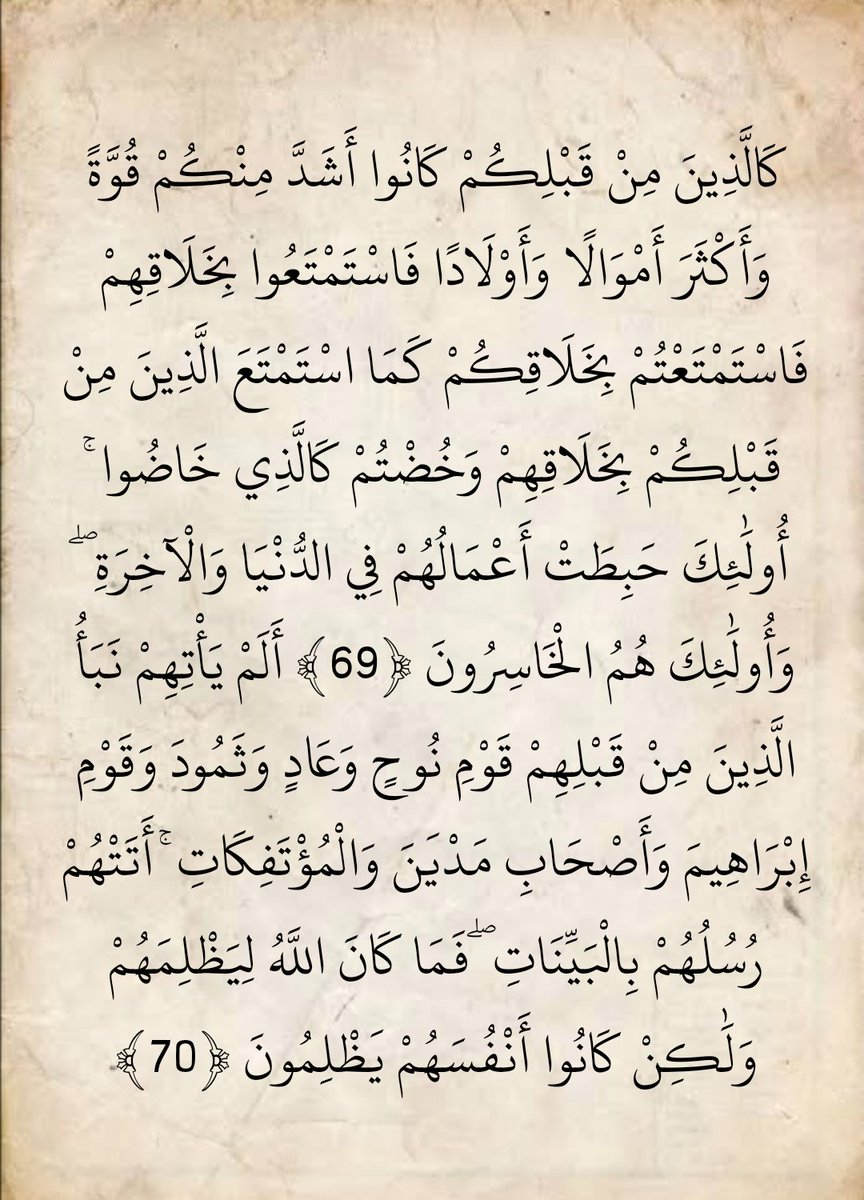 كَالَّذِينَ مِنْ قَبْلِكُمْ كَانُوا أَشَدَّ مِنْكُمْ قُوَّةً
وَأَكْثَرَ أَمْوَالًا وَأَوْلَادًا فَاسْتَمْتَعُوا بِخَلَاقِهِمْ
فَاسْتَمْتَعْتُمْ بِخَلَاقِكُمْ كَمَا اسْتَمْتَعَ الَّذِينَ مِنْ
قَبْلِكُمْ بِخَلَاقِهِمْ وَخُضْتُمْ كَالَّذِي خَاضُوا ۚ
أُولَٰئِكَ حَبِطَتْ أَعْمَالُهُمْ فِي الدُّنْيَا وَالْآخِرَةِ ۖ
وَأُولَٰئِكَ هُمُ الْخَاسِرُونَ ﴿69﴾ أَلَمْ يَأْتِهِمْ نَبَأُ
الَّذِينَ مِنْ قَبْلِهِمْ قَوْمِ نُوحٍ وَعَادٍ وَثَمُودَ وَقَوْمِ
إِبْرَاهِيمَ وَأَصْحَابِ مَدْيَنَ وَالْمُؤْتَفِكَاتِ ۚ أَتَتْهُمْ
رُسُلُهُمْ بِالْبَيِّنَاتِ ۖ فَمَا كَانَ اللَّهُ لِيَظْلِمَهُمْ
وَلَٰكِنْ كَانُوا أَنْفُسَهُمْ يَظْلِمُونَ ﴿70﴾